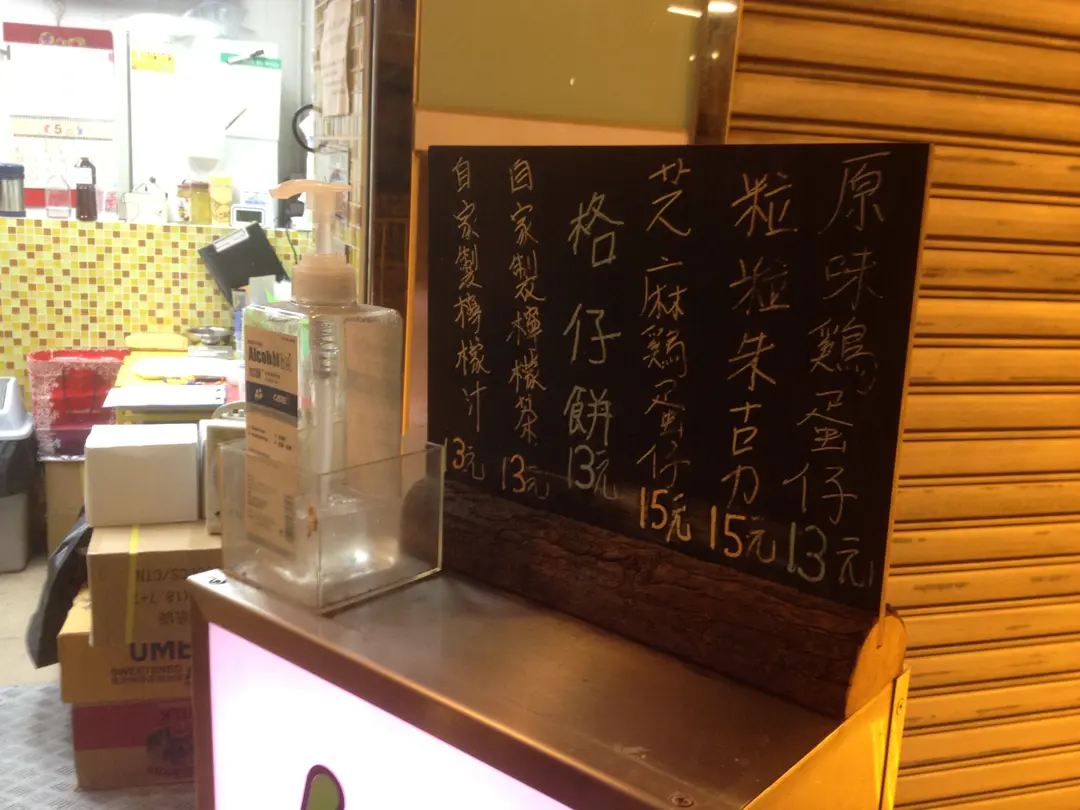 原味鷄蛋仔13元
粒粒朱古力15元
芝麻鷄蛋仔15元
格仔餅13元
自家製檸檬茶13元
自家製檸檬汁13元
Alcohol
5